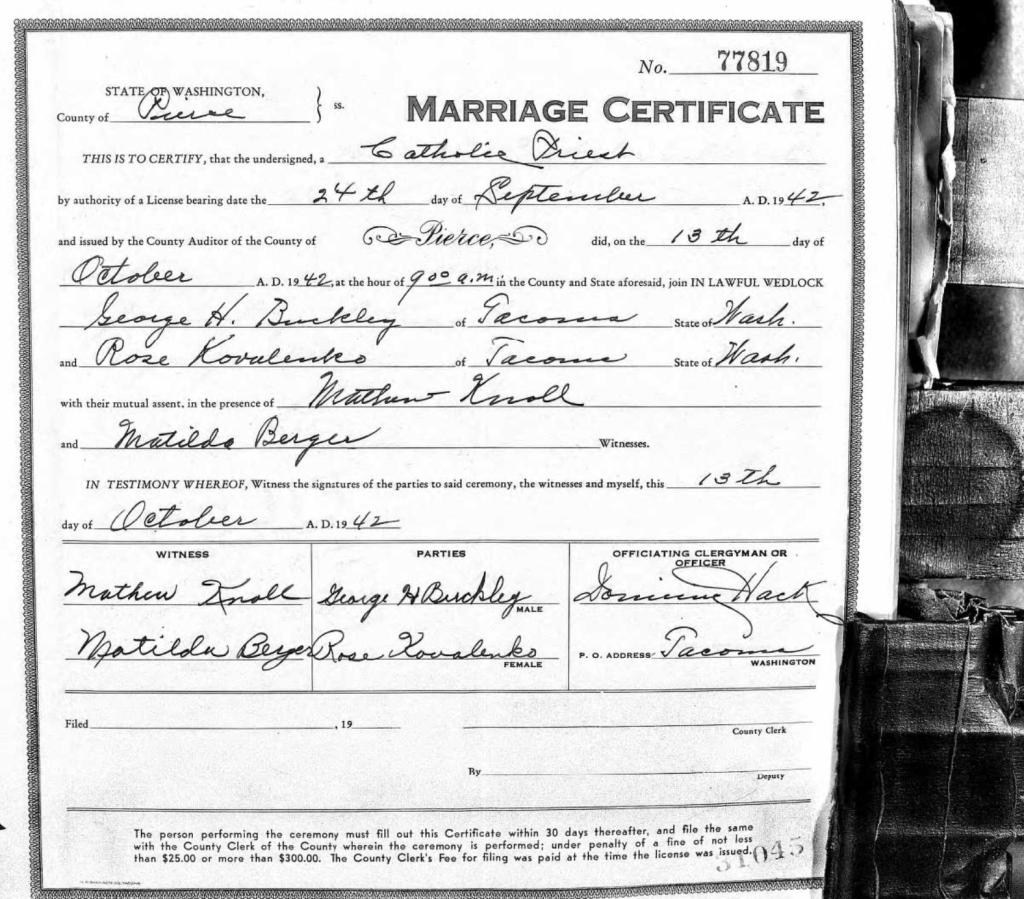 No. 77819
STATE OF WASHINGTON,
County of Pierce } ss.
MARRIAGE CERTIFICATE
THIS IS TO CERTIFY, that the undersigned, a Catholic Priest
by authority of a License bearing date the 24th day of September A. D. 1942,
and issued by the County Auditor of the County of Pierce, did, on the 13th day of
October A. D. 1942, at the hour of 9 00 a.m. in the County and State aforesaid, join IN LAWFUL WEDLOCK
George H. Buckley of Tacoma State of Wash.
and Rose Kovalenko of Tacoma State of Wash.
with their mutual assent, in the presence of Mathew Knoll
and Matilda Berger Witnesses.
IN TESTIMONY WHEREOF, Witness the signatures of the parties to said ceremony, the witnesses and myself, this 13th
day of October A. D. 1942
WITNESS PARTIES OFFICIATING CLERGYMAN OR OFFICER
Mathew Knoll George H Buckley MALE Hack
Matilda Berger Rose Kovalenko FEMALE P. O. ADDRESS Tacoma WASHINGTON
Filed , 19
County Clerk
By
Deputy
The person performing the ceremony must fill out this Certificate within 30 days thereafter, and file the same
with the County Clerk of the County wherein the ceremony is performed; under penalty of a fine of not less
than $25.00 or more than $300.00. The County Clerk's Fee for filing was paid at the time the license was issued.
31045